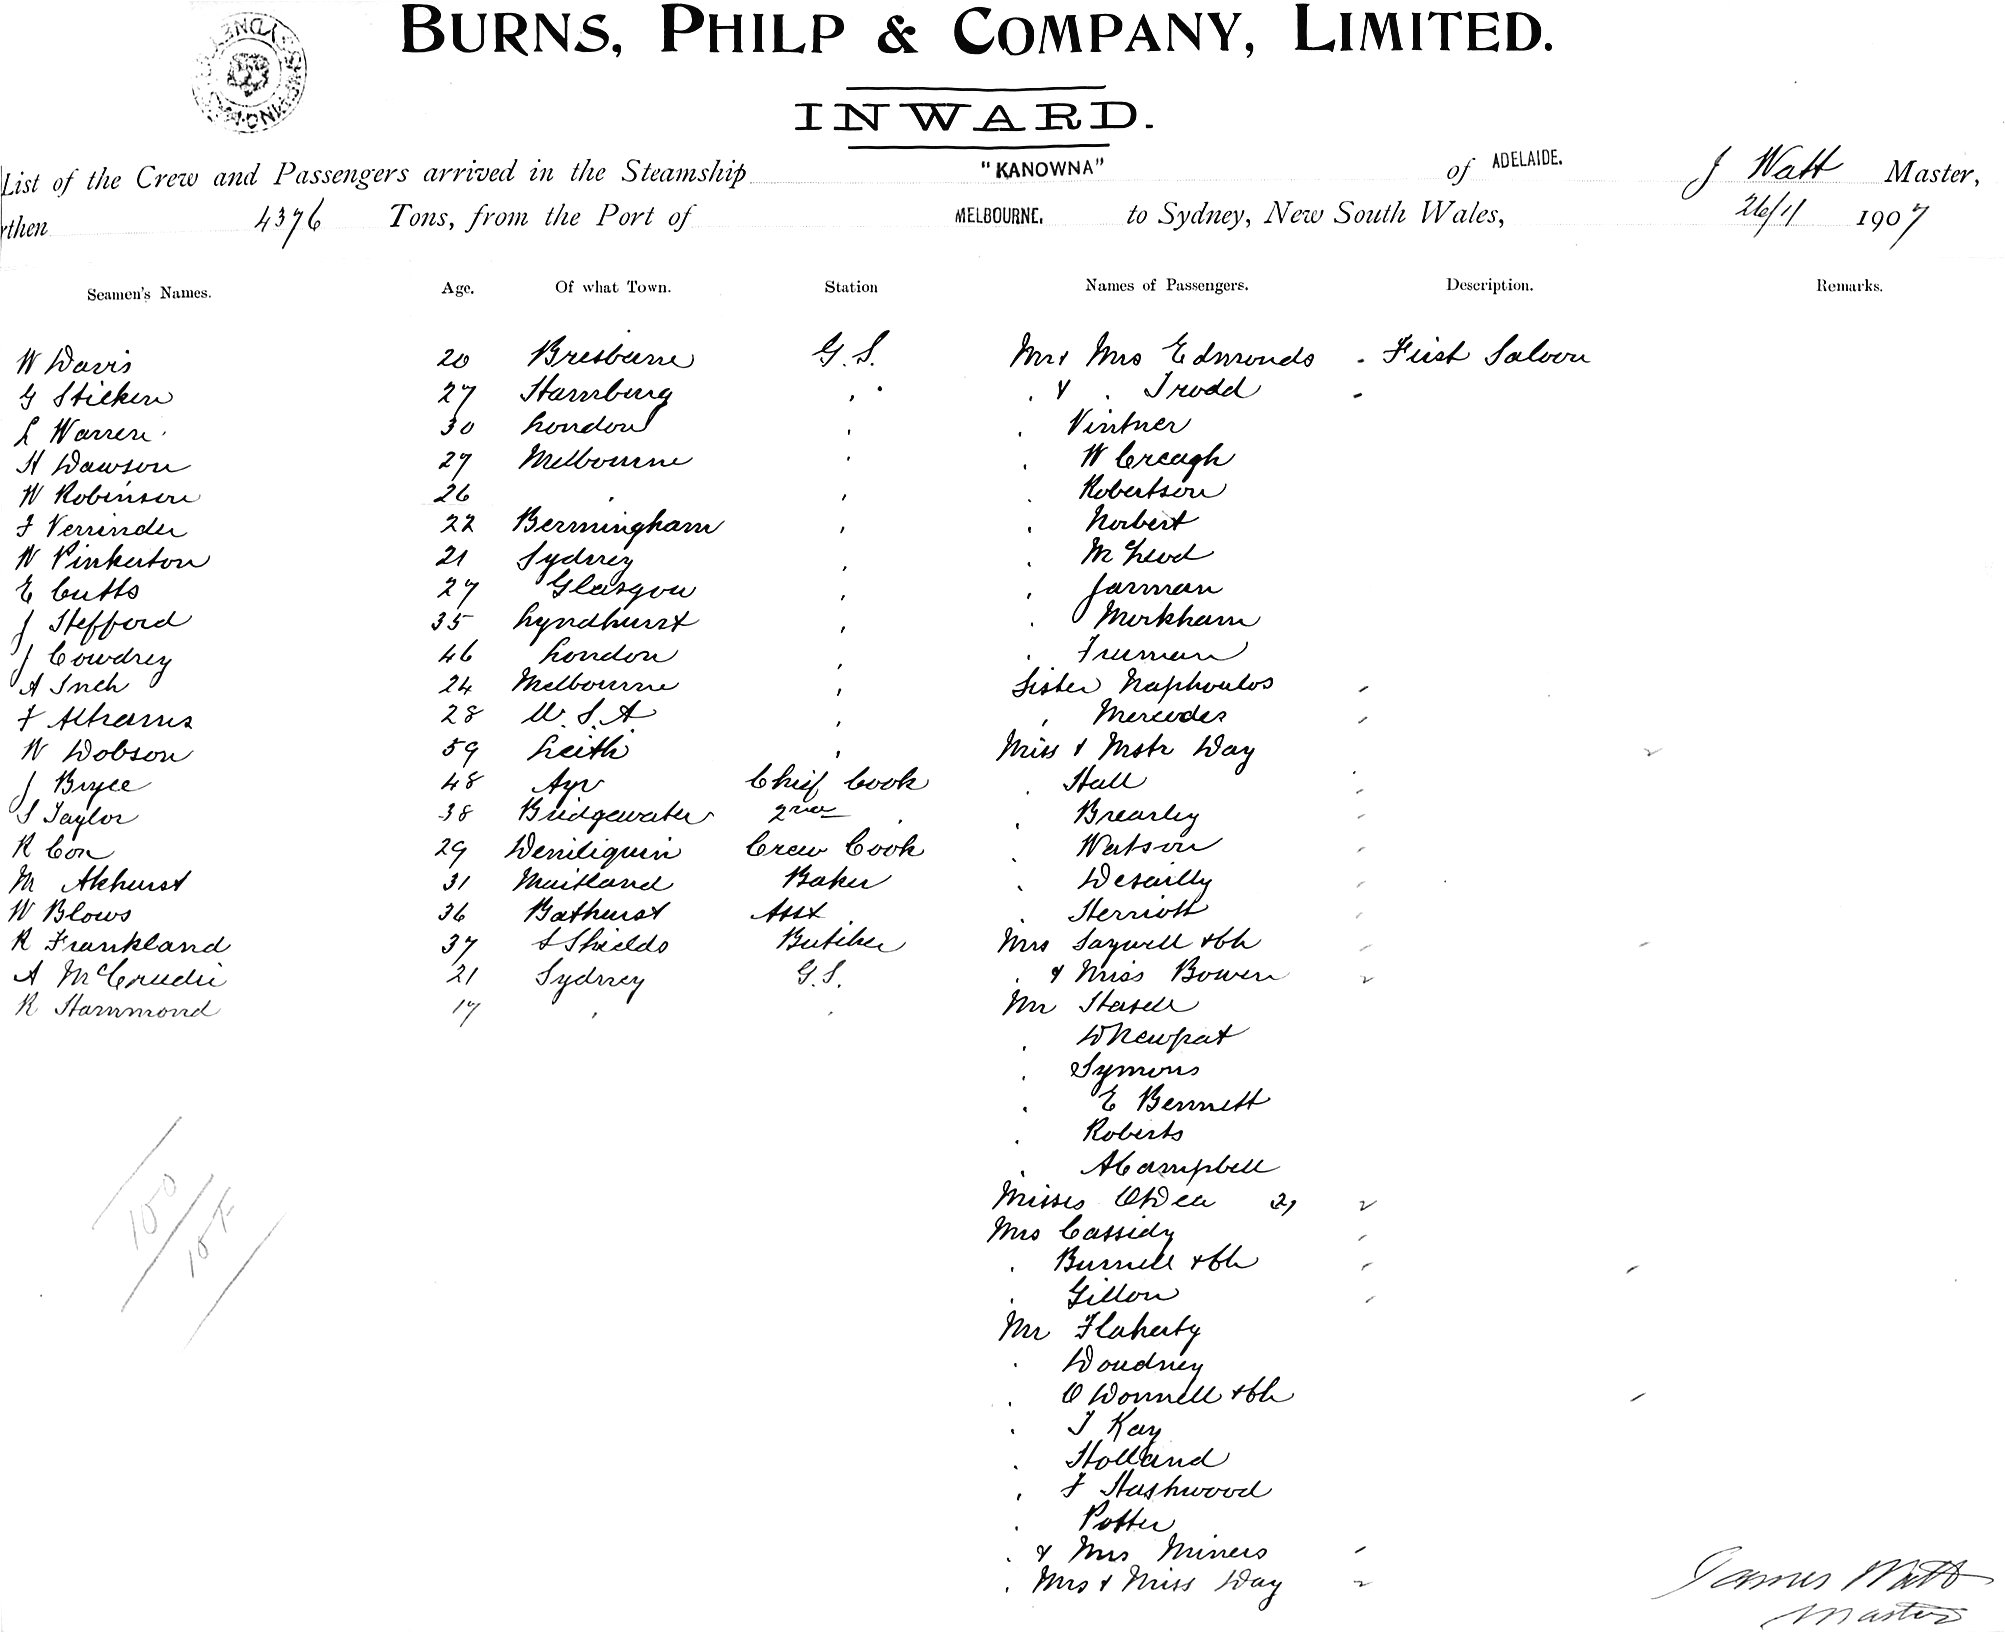 BURNS, PHILP & COMPANY, LIMITED.
INWARD.
List of the Crew and Passengers arrived in the Steamship "KANOWNA" of ADELAIDE. J Watt Master,
rthen 4376 Tons, from the Port of MELBOURNE. to Sydney, New South Wales, 26/11 1907
Seamen's Names. Age. Of what Town. Station Names of Passengers. Description. Remarks.
W Davis 20 Brisbane G.S. Mr & Mrs Edmonds - First Saloon
G Sticken 27 Hamburg " . & . Trodd -
L Warren 30 London ' . Vintner
H Dawson 27 Melbourne ' . W Creagh
W Robinson 26 ' ' . Robertson
F Verrinder 22 Bermingham ' . Norbert
W Pinkerton 21 Sydney ' . McLeod
E Cutts 27 Glasgow ' . Jarman
J Stefford 35 Lyndhurst ' . Morkham
J Cowdrey 46 London ' . Freeman
A Inch 24 Melbourne ' Sister Naphoulos "
F Abrams 28 U.S.A ' " Mercedes "
W Dobson 59 Leith ' Miss & Mstr Day 2
J Bryce 48 Ayr Chief Cook . Hall "
S Taylor 38 Bridgewater 2nd . . Brearley "
R Cox 29 Deniliquin Crew Cook . Watson "
M Akhurst 31 Maitland Baker . Desailly "
W Blows 36 Bathurst Asst . Herriott "
R Frankland 37 S Shields Butcher Mrs Saywell & Ch " -
A McCrudie 21 Sydney G.S. . & Miss Bowen 2
R Hammond 17 ' ' Mr Hasell
. D Newpat
. Symons
. E Bennett
. Roberts
. A Campbell
Misses O'Dea 2, 2
Mrs Cassidy "
. Burnell & Ch " -
. Gillon "
Mr Flaherty
. Doudney
. O Donnell & Ch -
. T Kay
. Holland
. F Hashwood
. Potter
. & Mrs Miners -
. Mrs & Miss Day 2
James Watt
Master